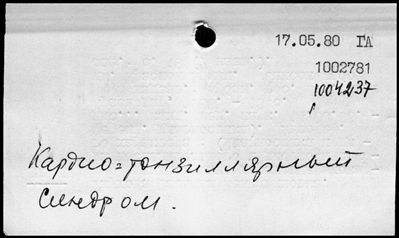 17.05.80 ГА
1002781
1004237
Кардио=тонзиллярный
синдром.